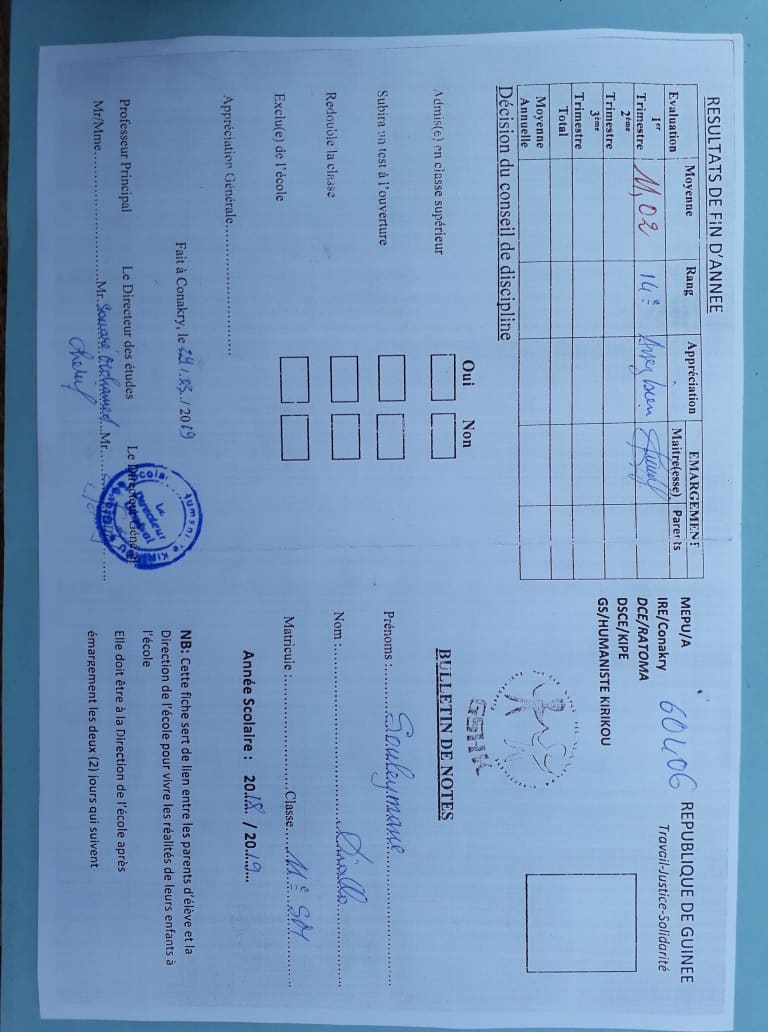 RESULTATS DE FIN D'ANNEE
Evaluation Moyenne Rang Appréciation EMARGEMENT
Maitre(esse) Parents
1er Trimestre 11,02 14e Assez bien
2ème Trimestre
3ème Trimestre
Total
Moyenne Annuelle
Décision du conseil de discipline
Oui Non
Admis(e) en classe supérieur
Subira un test à l'ouverture
Redouble la classe
Exclu(e) de l'école
Appréciation Générale
Fait à Conakry, le 29 / 03 / 2019
Professeur Principal Le Directeur des études Le Directeur Général
Mr/Mme Mr. Mohamed Mr.
Le Directeur Général
MEPU/A REPUBLIQUE DE GUINEE
IRE/Conakry Travail-Justice-Solidarité
DCE/RATOMA
DSCE/KIPE
GS/HUMANISTE KIRIKOU
GSHK
BULLETIN DE NOTES
Prénoms : Souleymane
Nom : Diallo
Matricule : Classe 11e SM
Année Scolaire : 2018 / 2019
NB: Cette fiche sert de lien entre les parents d'élève et la
Direction de l'école pour vivre les réalités de leurs enfants à
l'école
Elle doit être à la Direction de l'école après
émargement les deux (2) jours qui suivent